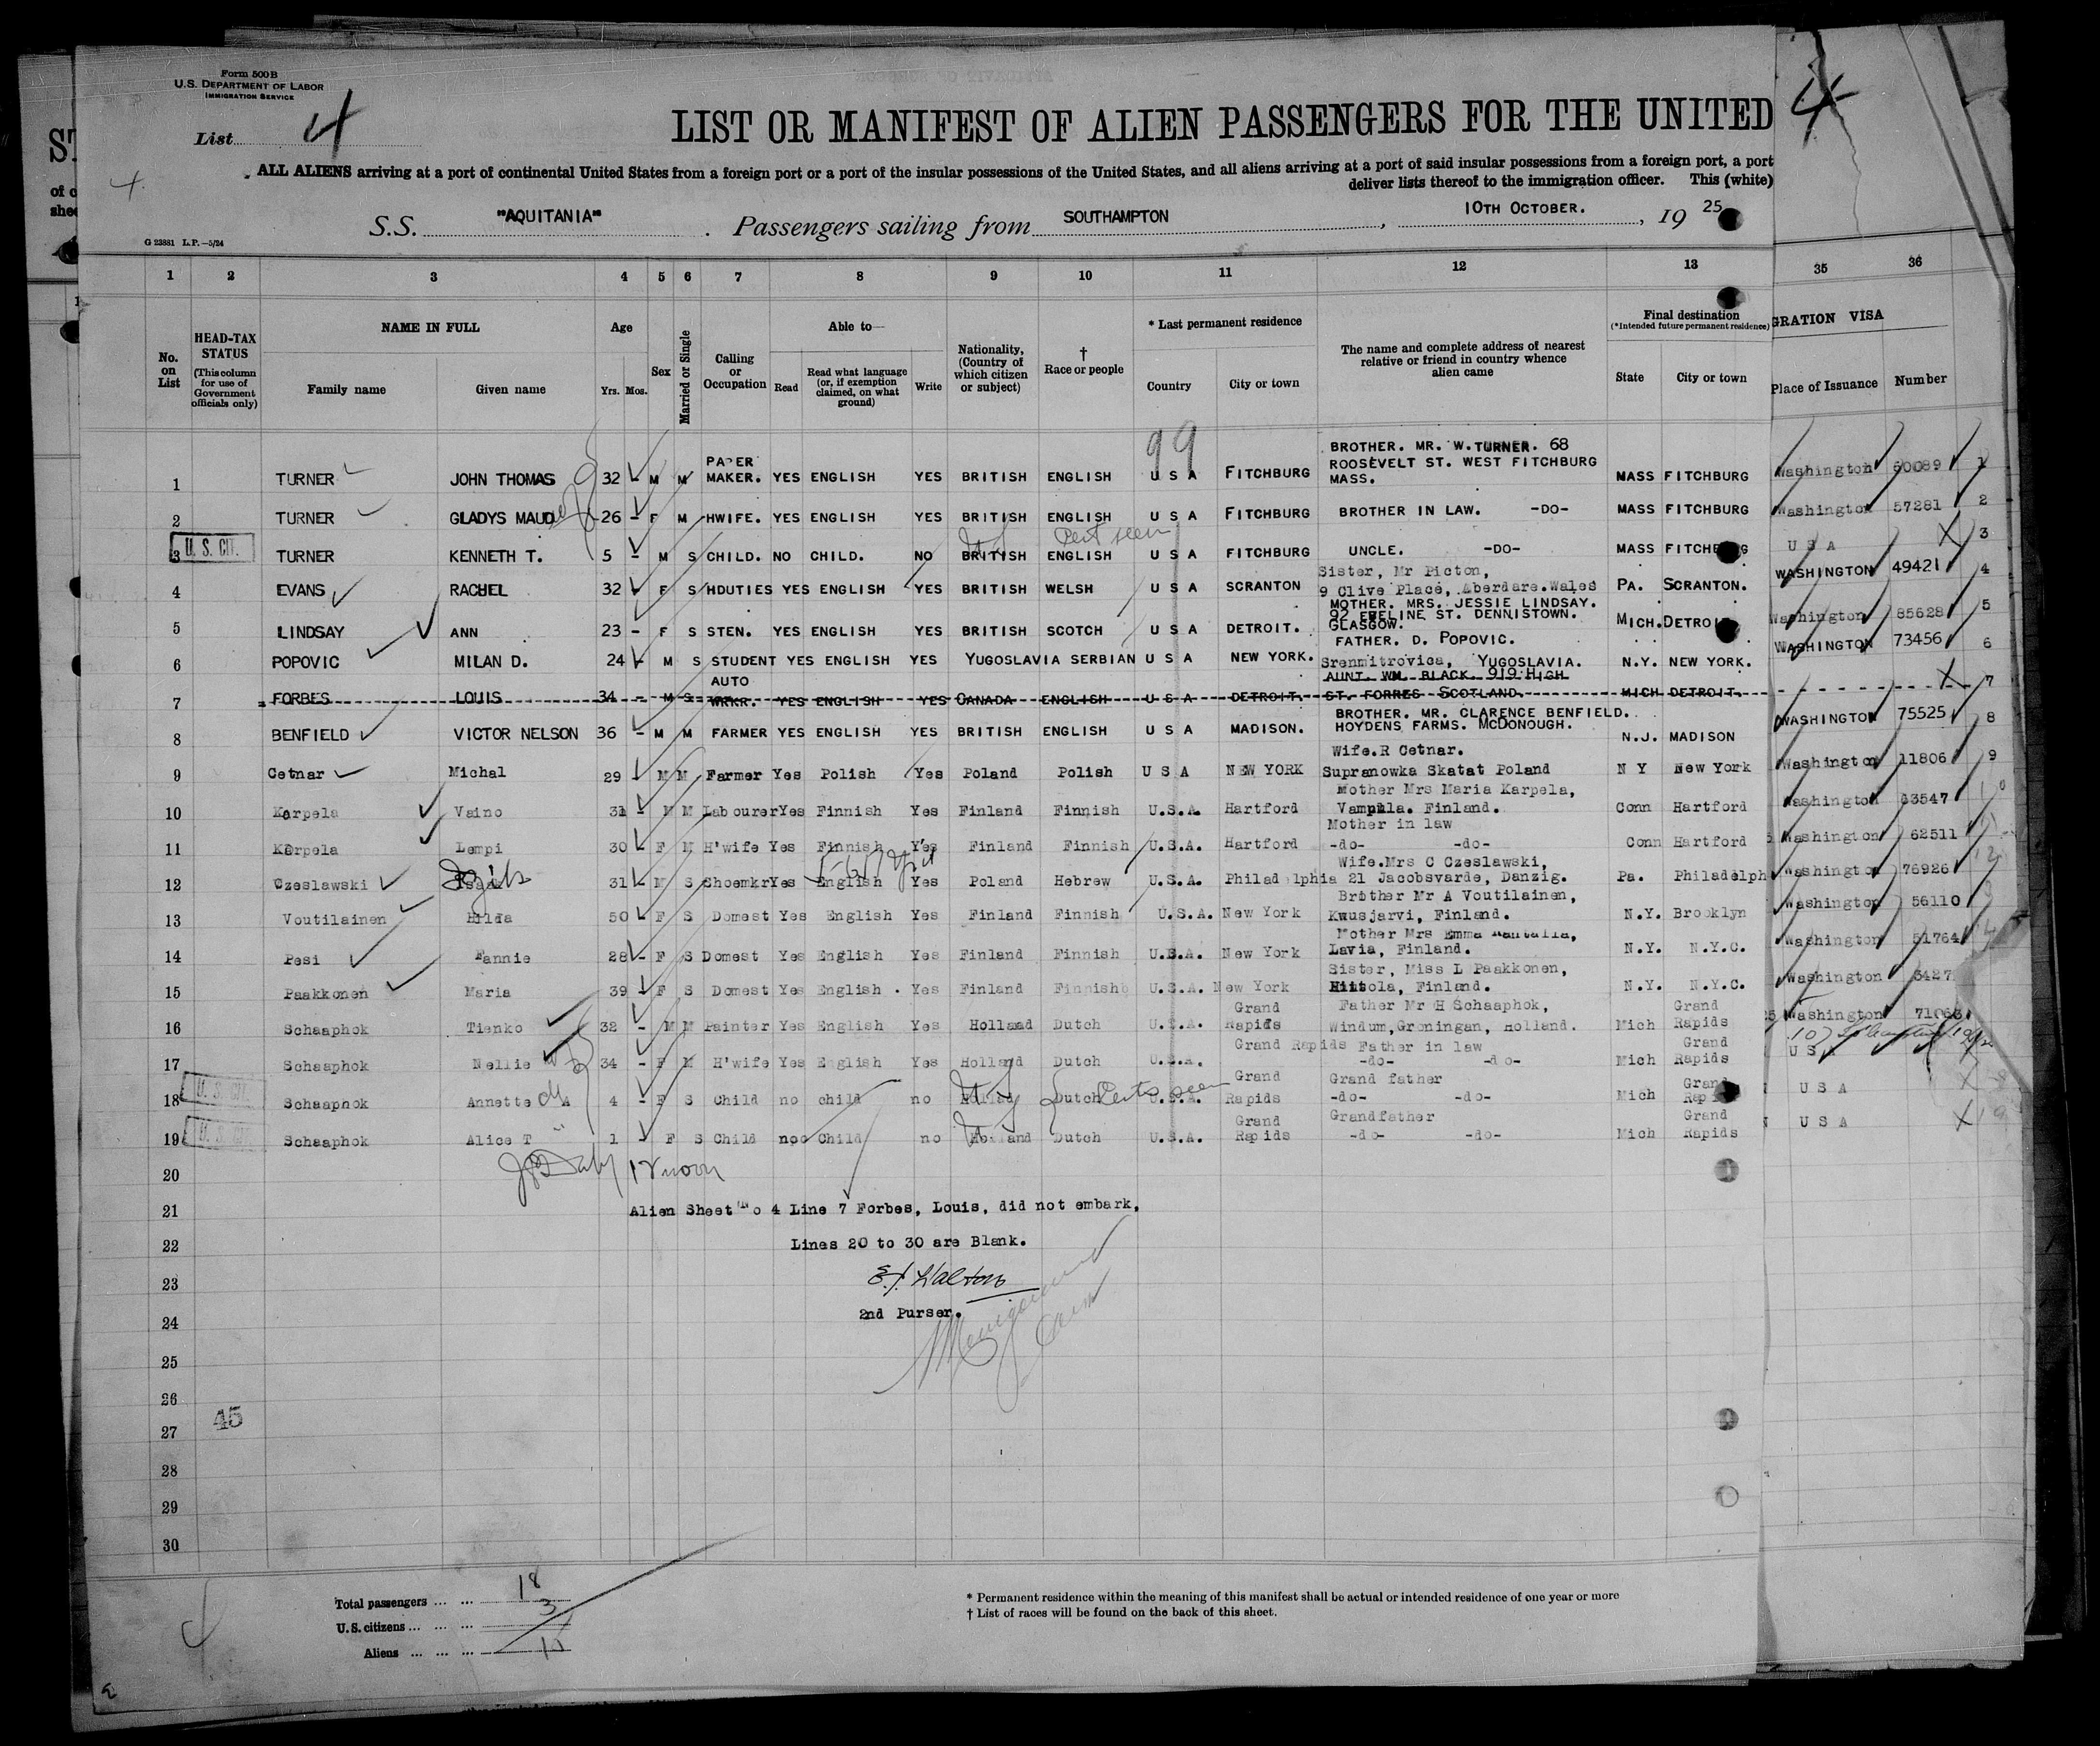 Form 500 B
U.S. DEPARTMENT OF LABOR
IMMIGRATION SERVICE
List 4
LIST OR MANIFEST OF ALIEN PASSENGERS FOR THE UNITED
4
ALL ALIENS arriving at a port of continental United States from a foreign port or a port of the insular possessions of the United States, and all aliens arriving at a port of said insular possessions from a foreign port, a port
deliver lists thereof to the immigration officer. This (white)
S.S. "AQUITANIA" . Passengers sailing from SOUTHAMPTON , 10TH OCTOBER. , 19 25
G 23881 L.P.—5/24
1 2 3 4 5 6 7 8 9 10 11 12 13 35 36
No. on List
HEAD-TAX STATUS
(This column for use of Government officials only)
NAME IN FULL
Family name Given name
Age
Yrs. Mos.
Sex
Married or Single
Calling or Occupation
Able to—
Read
Read what language (or, if exemption claimed, on what ground)
Write
Nationality, (Country of which citizen or subject)
† Race or people
* Last permanent residence
Country City or town
The name and complete address of nearest relative or friend in country whence alien came
Final destination
(*Intended future permanent residence)
State City or town
GRATION VISA
Place of Issuance Number
99
1 TURNER JOHN THOMAS 32 - M M PAPER MAKER. YES ENGLISH YES BRITISH ENGLISH U S A FITCHBURG BROTHER. MR. W. TURNER. 68 ROOSEVELT ST. WEST FITCHBURG MASS. MASS FITCHBURG Washington 60089 1
2 TURNER GLADYS MAUD 26 - F M HWIFE. YES ENGLISH YES BRITISH ENGLISH U S A FITCHBURG BROTHER IN LAW. -DO- MASS FITCHBURG Washington 57281 2
U. S. CIT.
Cert seen
3 TURNER KENNETH T. 5 - M S CHILD. NO CHILD. NO BRITISH ENGLISH U S A FITCHBURG UNCLE. -DO- MASS FITCHB G U S A X 3
4 EVANS RACHEL 32 - F S HDUTIES YES ENGLISH YES BRITISH WELSH U S A SCRANTON Sister, Mr Picton, 9 Clive Place, Aberdare.Wales PA. SCRANTON. WASHINGTON 49421 4
5 LINDSAY ANN 23 - F S STEN. YES ENGLISH YES BRITISH SCOTCH U S A DETROIT. MOTHER. MRS. JESSIE LINDSAY. 92 EVELINE ST. DENNISTOWN. GLASGOW. MICH. DETROI Washington 85628 5
6 POPOVIC MILAN D. 24 - M S STUDENT YES ENGLISH YES YUGOSLAVIA SERBIAN U S A NEW YORK. FATHER. D. POPOVIC. Srenmitrovica, YUGOSLAVIA. N.Y. NEW YORK. WASHINGTON 73456 6
7 FORBES LOUIS 34 - M S AUTO WRKR. YES ENGLISH YES CANADA ENGLISH U S A DETROIT. AUNT. WM. BLACK. 919 HIGH ST. FORRES SCOTLAND. MICH DETROIT. X 7
8 BENFIELD VICTOR NELSON 36 - M M FARMER YES ENGLISH YES BRITISH ENGLISH U S A MADISON. BROTHER. MR. CLARENCE BENFIELD. HOYDENS FARMS. McDONOUGH. N.J. MADISON WASHINGTON 75525 8
9 Cetnar Michal 29 - M M Farmer Yes Polish Yes Poland Polish U S A NEW YORK Wife.R Cetnar. Supranowka Skatat Poland N Y New York Washington 11806 9
10 Karpela Vaino 31 - M M Labourer Yes Finnish Yes Finland Finnish U.S.A. Hartford Mother Mrs Maria Karpela, Finland. Conn Hartford Washington 63547 10
11 Karpela Lempi 30 - F M H'wife Yes Finnish Yes Finland Finnish U.S.A. Hartford Mother in law -do- -do- Conn Hartford Washington 62511
12 Czeslawski 31 - M S Shoemkr Yes English Yes Poland Hebrew U.S.A. Philadelphia Wife.Mrs C Czeslawski, 21 Jacobsvarde, Danzig. Pa. Philadelph Washington 76926 12
13 Voutilainen Hilda 50 - F S Domest Yes English Yes Finland Finnish U.S.A. New York Brother Mr A Voutilainen, Kwusjarvi, Finland. N.Y. Brooklyn Washington 56110
14 Pesi Fannie 28 - F S Domest Yes English Yes Finland Finnish U.S.A. New York Mother Mrs Emma Lavia, Finland. N.Y. N.Y.C. Washington 51764
15 Paakkonen Maria 39 - F S Domest Yes English Yes Finland Finnish U.S.A. New York Sister, Miss L Paakkonen, Hiitola, Finland. N.Y. N.Y.C. Washington 3427
16 Schaaphok Tienko 32 - M M Painter Yes English Yes Holland Dutch U.S.A. Grand Rapids Father Mr H Schaaphok, Windum,Groningan, Holland. Mich Grand Rapids Washington
17 Schaaphok Nellie 34 - F M H'wife Yes English Yes Holland Dutch U.S.A. Grand Rapids Father in law -do- -do- Mich Grand Rapids U S A
U. S. CIT.
Certs seen
18 Schaaphok Annette A 4 - F S Child no child no Holland Dutch U.S.A. Grand Rapids Grand father -do- -do- Mich Grand Rap U S A X
U. S. CIT.
19 Schaaphok Alice T 1 - F S Child no Child no Holland Dutch U.S.A. Grand Rapids Grandfather -do- -do- Mich Grand Rapids U S A X 19
20 12 noon
21 Alien Sheet No 4 Line 7 Forbes, Louis, did not embark,
22 Lines 20 to 30 are Blank.
23
2nd Purser.
24
25
26
45
27
28
29
30
Total passengers ... ... 18
U.S. citizens ... ... ... 3
Aliens ... ... ... 15
* Permanent residence within the meaning of this manifest shall be actual or intended residence of one year or more
† List of races will be found on the back of this sheet.